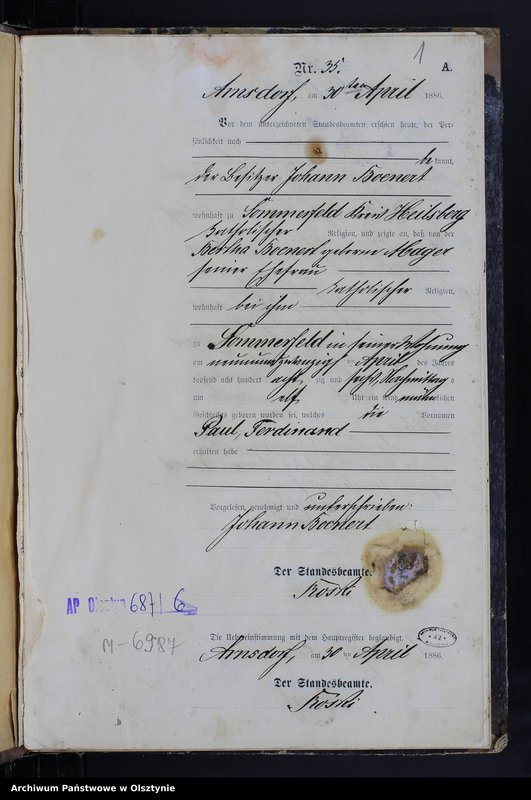 1
Nr. 35. A.
Arnsdorf, am 30ten April 1886.
Vor dem unterzeichneten Standesbeamten erschien heute, der Per-
sönlichkeit nach
bekannt,
der Besitzer Johann Boenert
wohnhaft zu Sommerfeld Kreis Heilsberg
katholischer Religion, und zeigte an, daß von der
Bertha Boenert geborne Mager
seiner Ehefrau
katholischer Religion,
wohnhaft bei ihm
zu Sommerfeld in seiner Wohnung
am neunundzwanzigsten April des Jahres
tausend acht hundert achtzig und sechs, Vormittags
um elf Uhr ein Kind männlichen
Geschlechts geboren worden sei, welches die Vornamen
Paul, Ferdinand
erhalten habe
Vorgelesen, genehmigt und unterschrieben:
Johann Boenert
Der Standesbeamte.
AP Olsztyn 687/6
M-6987
Die Uebereinstimmung mit dem Hauptregister beglaubigt.
Arnsdorf, am 30ten April 1886.
42
Der Standesbeamte.
Archiwum Państwowe w Olsztynie